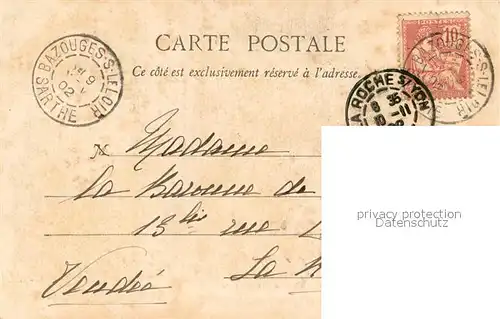 CARTE POSTALE
Ce côté est exclusivement réservé à l'adresse.
BAZOUGES-S-LE LOIR
SARTHE
9
02
10
POSTES
LA ROCHE S YON
8 35
11
Madame
La Baronne de
13 bis rue
La
Vendée
privacy protection
Datenschutz